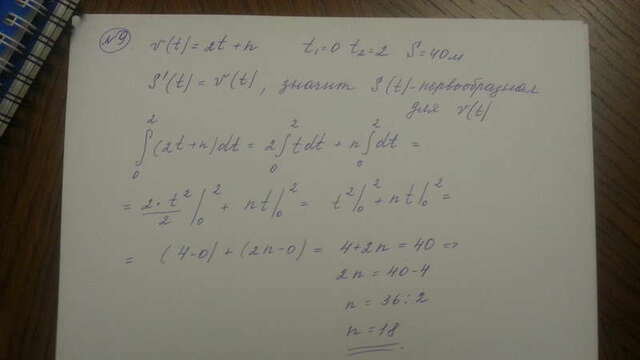 №9 v(t) = 2t + n t₁=0 t₂=2 S=40м
S'(t) = v(t), значит S(t)-первообразная
для v(t)
∫₀² (2t+n)dt = 2∫₀² tdt + n∫₀² dt =
= 2·t²/2 |₀² + nt|₀² = t²|₀² + nt|₀² =
= (4-0) + (2n-0) = 4+2n = 40 =>
2n = 40-4
n = 36:2
n = 18.